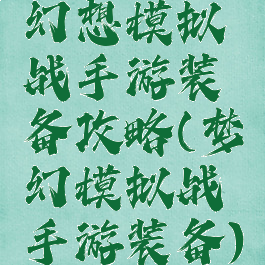 幻想模拟
战手游装
备攻略(梦
幻模拟战
手游装备)